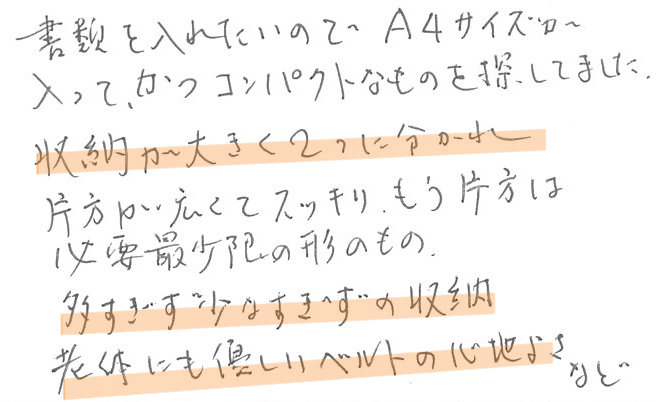 書類を入れたいので A4サイズが
入って、かつコンパクトなものを探してました。
収納が大きく2つに分かれ
片方が広くてスッキリ、もう片方は
必要最少限の形のもの。
多すぎず少なすぎずの収納
老体にも優しいベルトの心地よさ
など